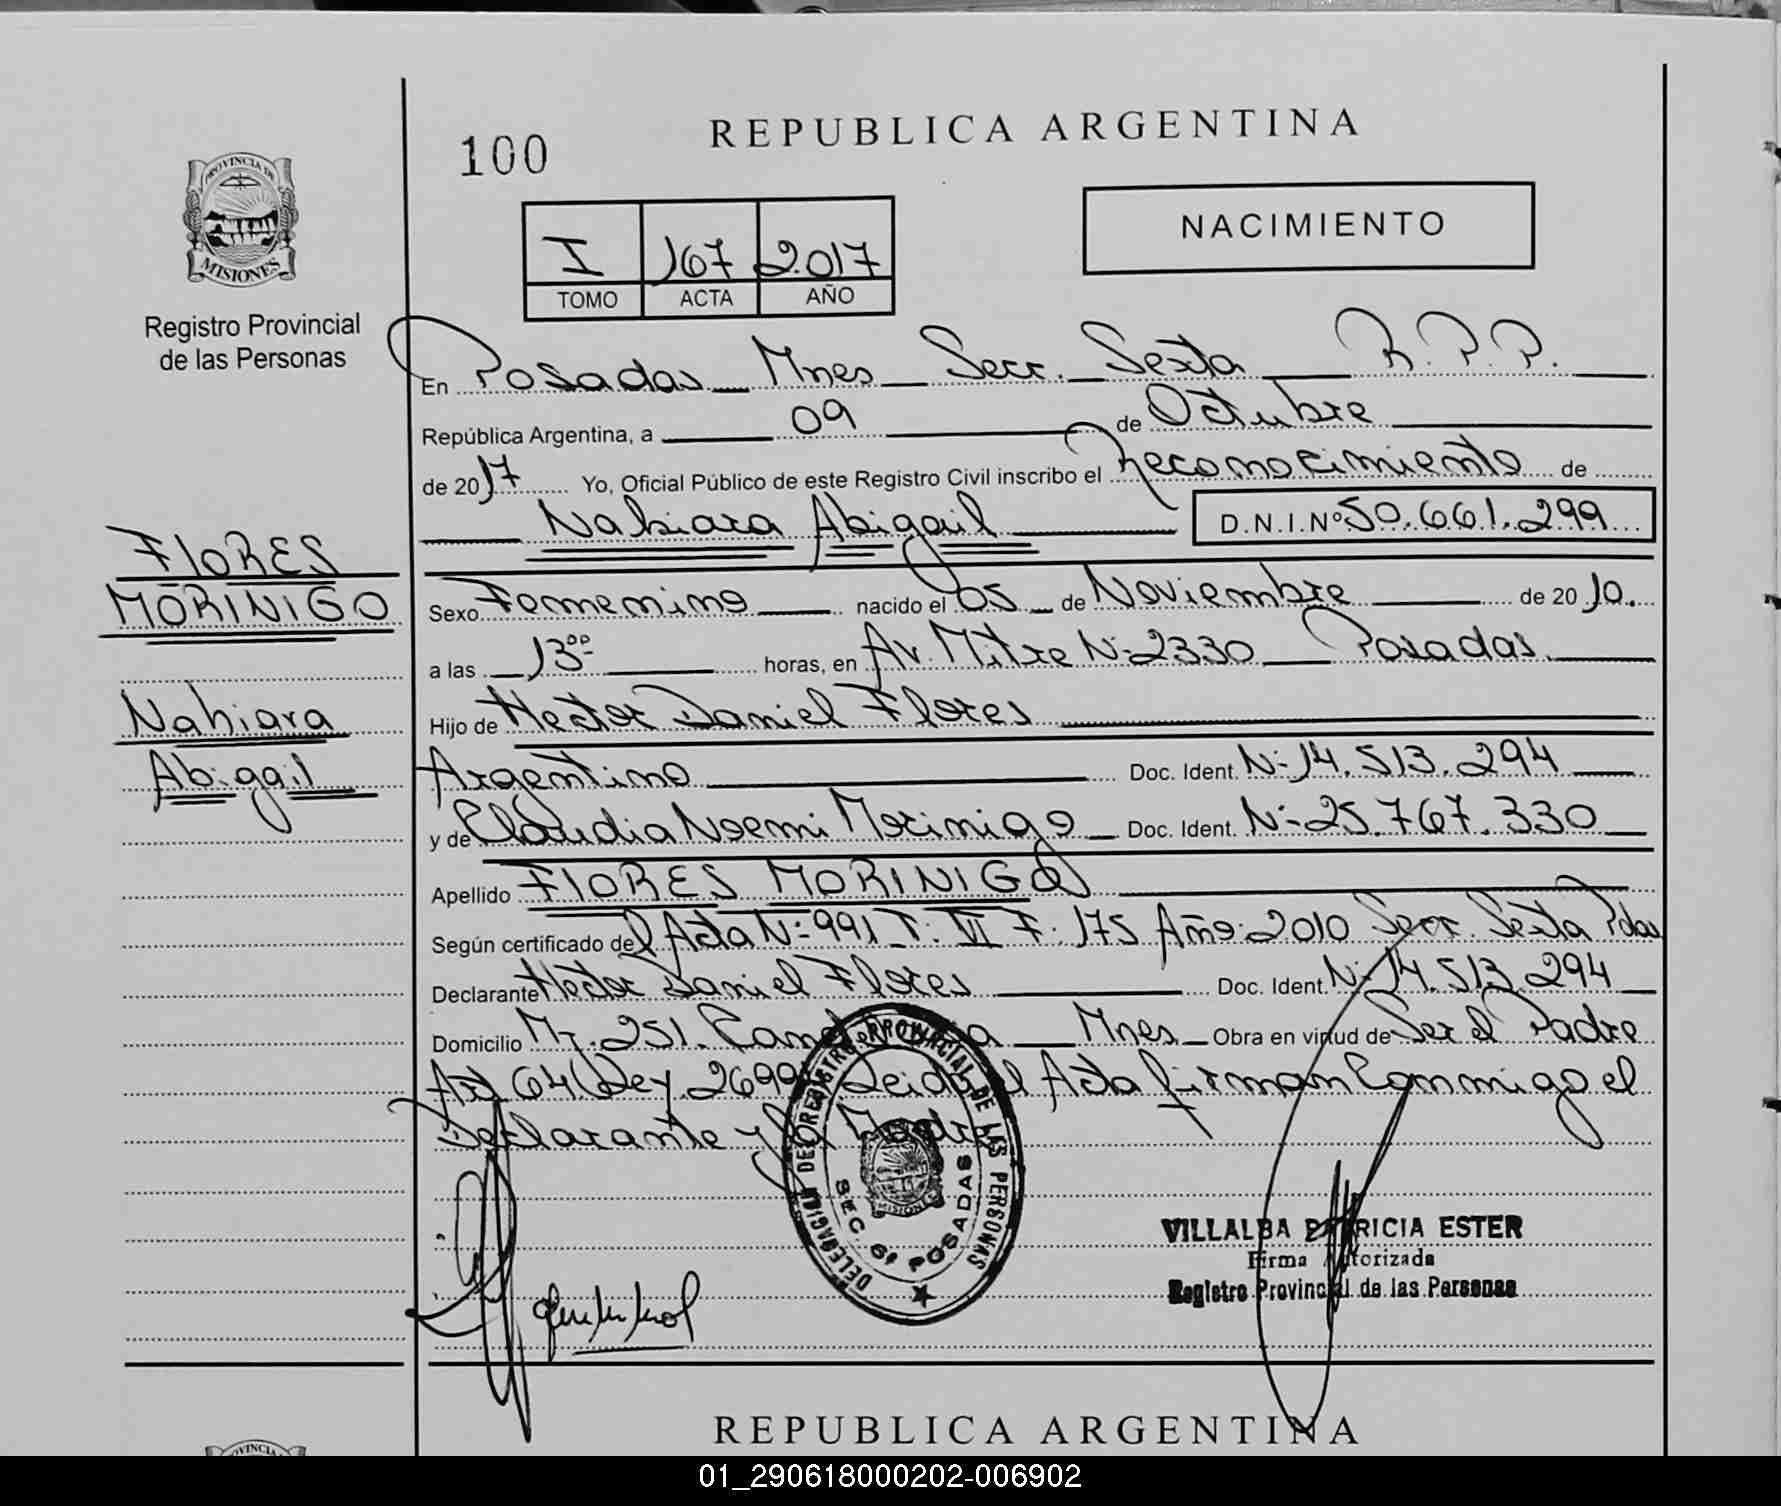 100
REPUBLICA ARGENTINA
PROVINCIA DE
MISIONES
Registro Provincial
de las Personas
NACIMIENTO
I 167 2017
TOMO ACTA AÑO
En Posadas Mnes Secc. Sexta R.P.P.
República Argentina, a 09 de Octubre
de 2017 Yo, Oficial Público de este Registro Civil inscribo el Reconocimiento de
Nahiara Abigail D.N.I.Nº 50.661.299
FLORES
MORINIGO
Nahiara
Abigail
Sexo Femenino nacido el 05 de Noviembre de 2010.
a las 13ºº horas, en Av. Mitre Nº 2330 Posadas.
Hijo de Hector Daniel Flores
Argentino Doc. Ident. Nº 14.513.294
y de Claudia Noemi Morinigo Doc. Ident. Nº 25.767.330
Apellido FLORES MORINIGO
Según certificado del Acta Nº 991 T. VI F. 175 Año 2010 Secc. Sexta Pdas
Declarante Hector Daniel Flores Doc. Ident. Nº 14.513.294
Domicilio Mz. 251. Mnes Obra en virtud de Ser el Padre
Art 64 Ley 26994 Leida el Acta firman Conmigo el
Declarante y la Madre
DELEGACION DE REGISTRO PROVINCIAL DE LAS PERSONAS
MISIONES
SEC. 6ª POSADAS
VILLALBA PATRICIA ESTER
Firma Autorizada
Registro Provincial de las Personas
REPUBLICA ARGENTINA
01_290618000202-006902